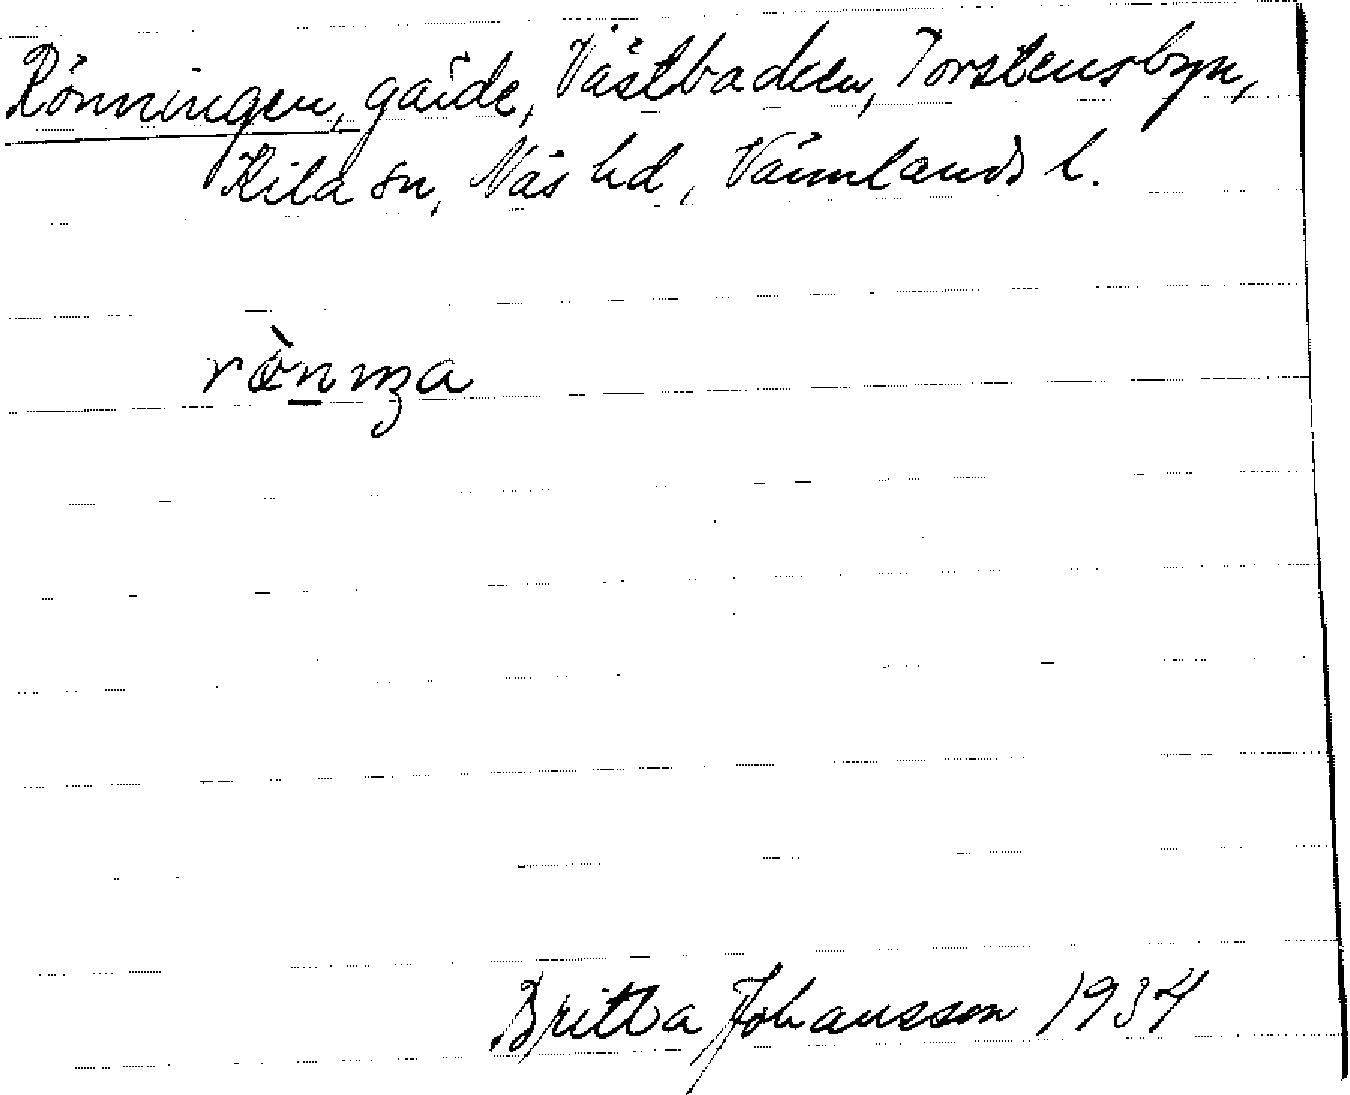 Rönningen, gärde, Västbacken, Torstensbyn,
Kila sn, Näs hd, Värmlands l.
Britta Johansson 1934